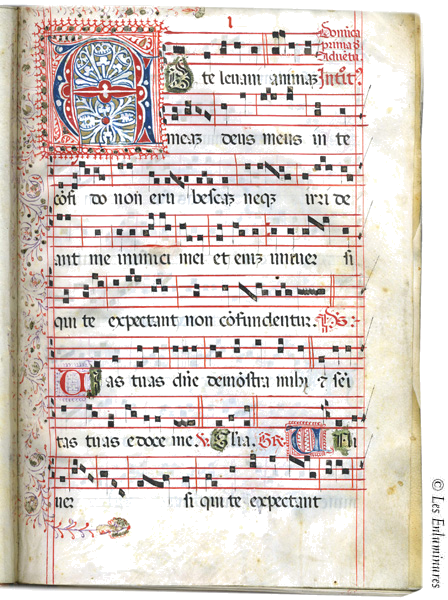 I
Domica
prima
Aduetu
Ad te leuaui animaz Introit
meaz deus meus in te
cōfi do non eru bescaz neqz irri de
ant me inimici mei et eniz uniuer si
qui te expectant non cōfundentur. Ps.
Uias tuas dn̄e demōstra mihi et sēi
tas tuas edoce me Glia. Gr. Uni
uer si qui te expectant
© Les Enluminures